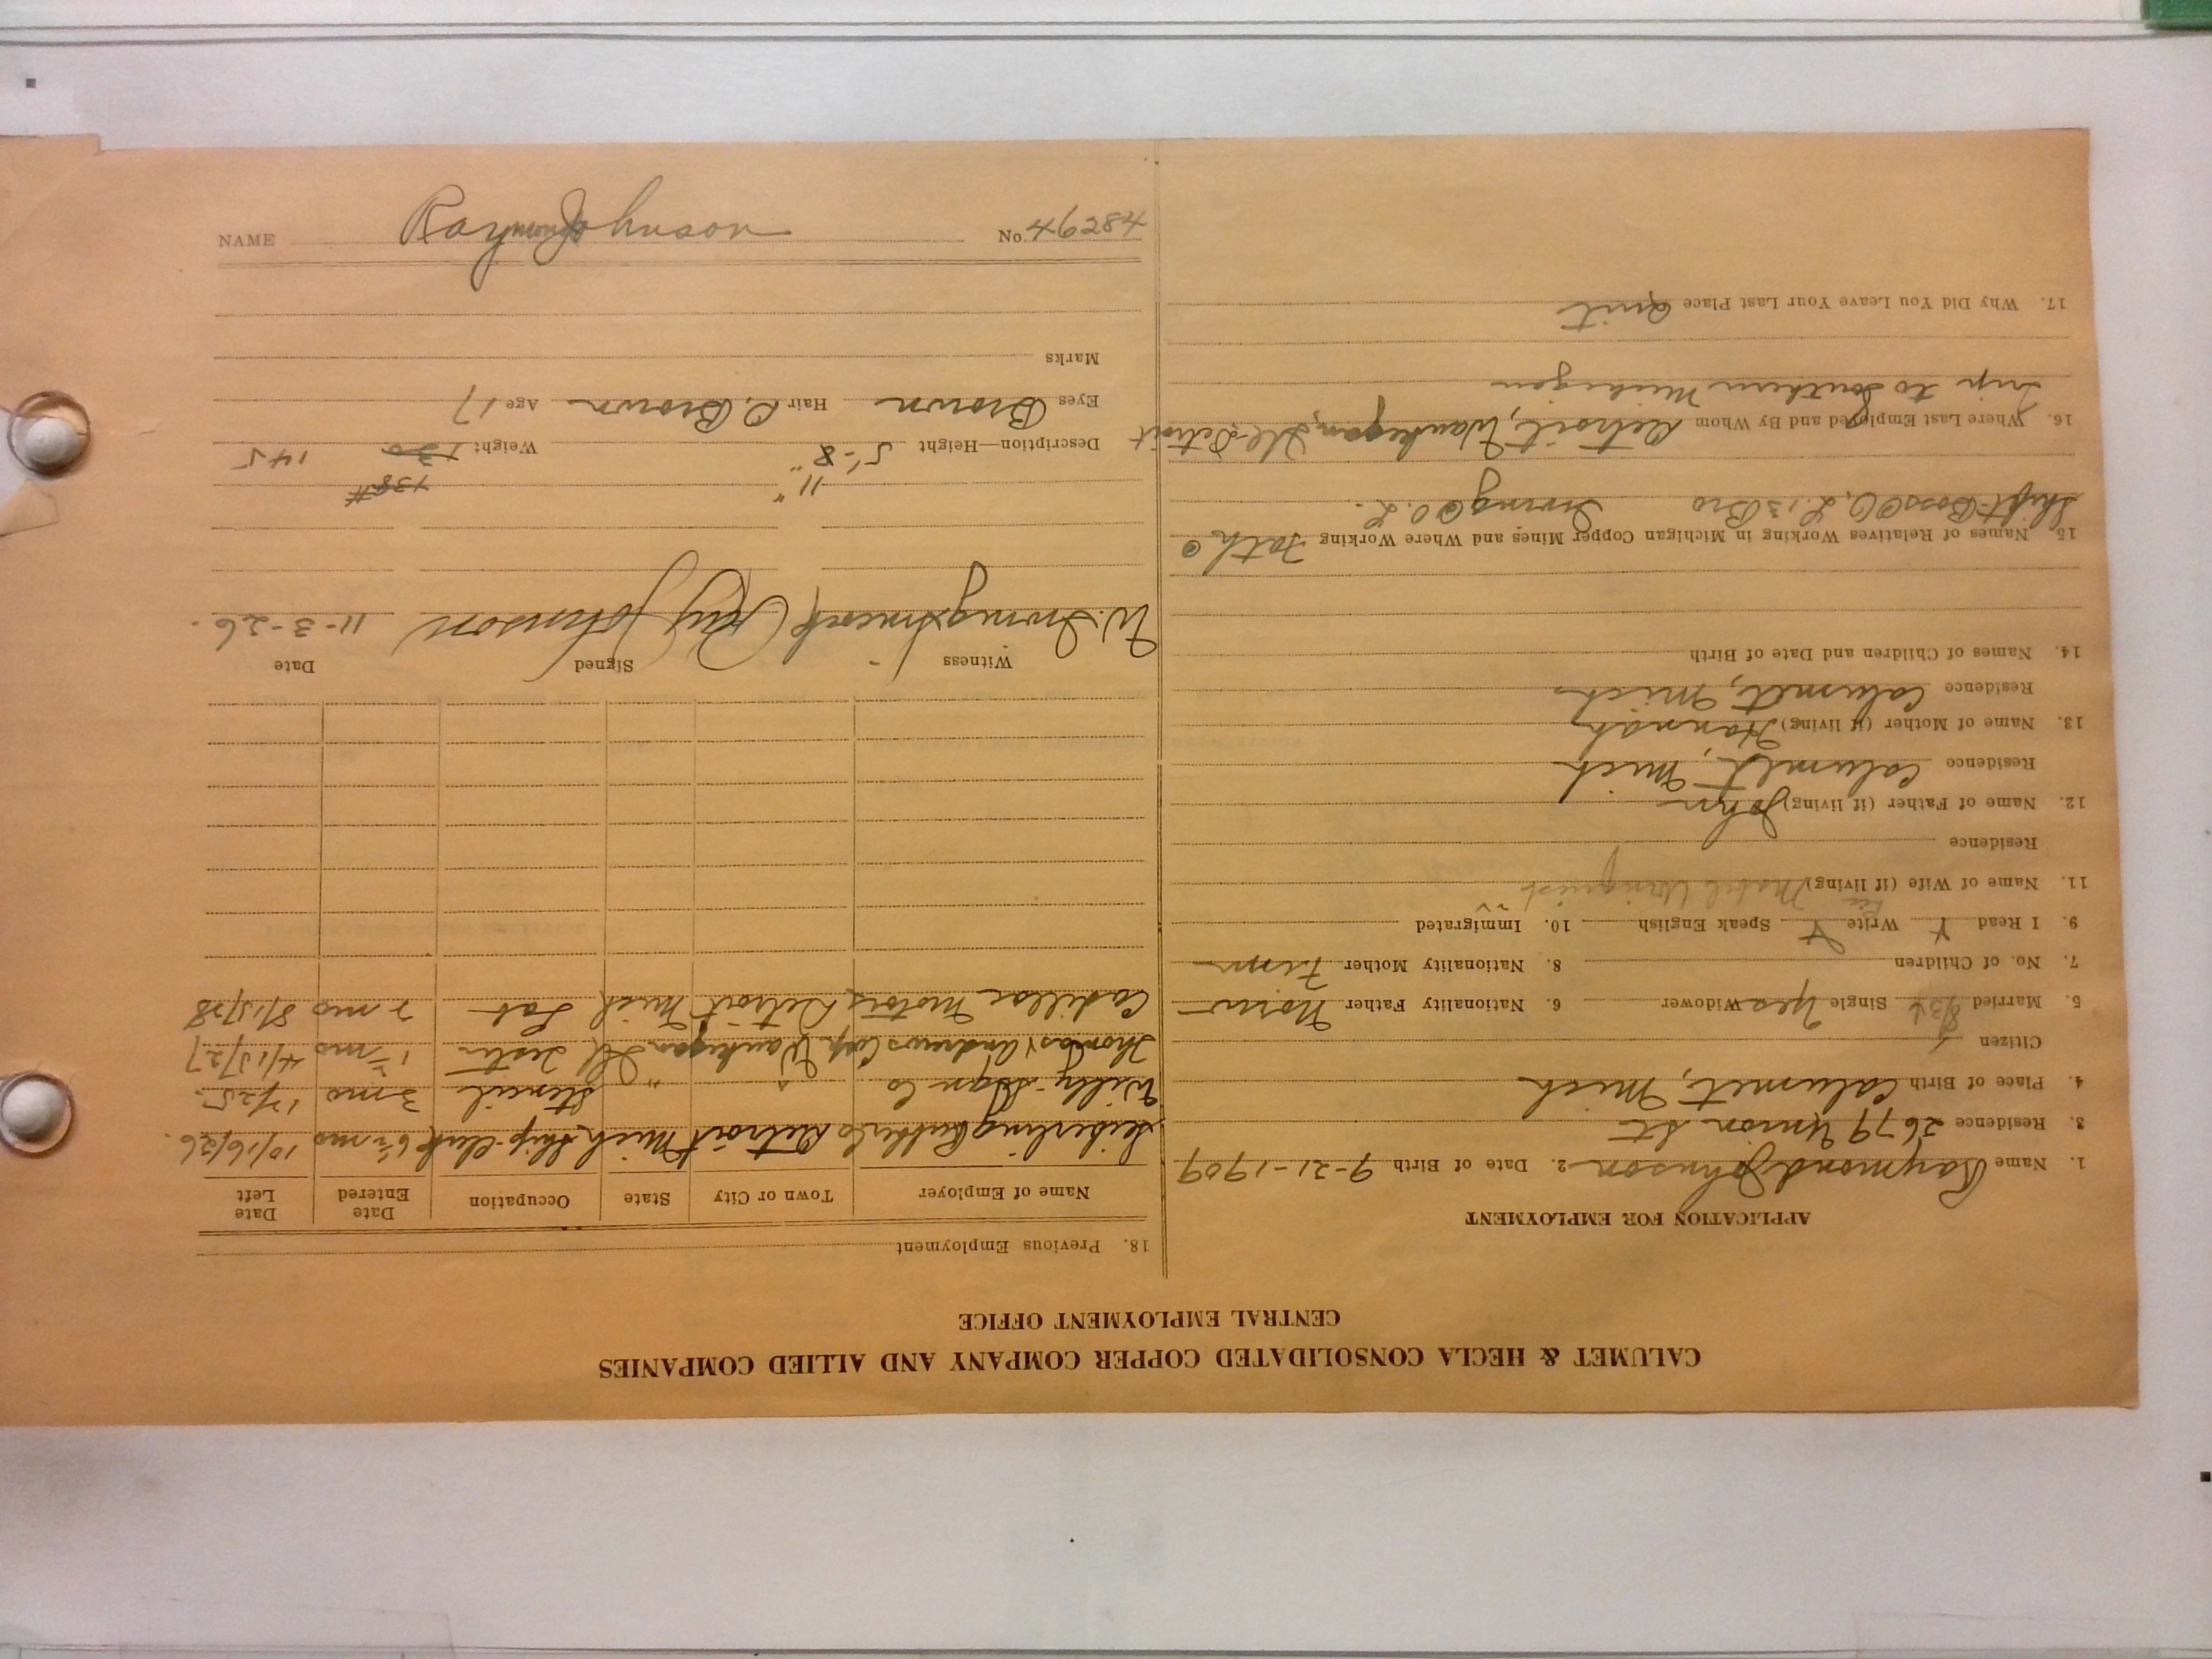 CALUMET & HECLA CONSOLIDATED COPPER COMPANY AND ALLIED COMPANIES
CENTRAL EMPLOYMENT OFFICE
APPLICATION FOR EMPLOYMENT
1. Name Raymond Johnson 2. Date of Birth 9-21-1909
3. Residence 2679 Union St
4. Place of Birth Calumet, Mich
Citizen
5. Married Single Yes Widower 6. Nationality Father Norw
7. No. of Children 8. Nationality Mother Finn
9. I Read Y Write Y Speak English 10. Immigrated
11. Name of Wife (if living) Mabel
Residence
12. Name of Father (if living) John
Residence Calumet, Mich
13. Name of Mother (if living) Hannah
Residence Calumet, Mich
14. Names of Children and Date of Birth
15. Names of Relatives Working in Michigan Copper Mines and Where Working Fath @
Shift-Boss @ O. L. 13 Bro Irving @ O. L.
16. Where Last Employed and By Whom Detroit, Waukegan, Ill-Detroit
Trip to Southern Michigan
17. Why Did You Leave Your Last Place Quit
18. Previous Employment
Name of Employer Town or City State Occupation Date Entered Date Left
Seiberling Rubber Co Detroit Mich Ship-Clerk 6½ mo 10/16/26.
Willy-Sign Co " " Stencil 3 mo 12/25.
Thomas & Andrews Corp. Waukegan Ill Tester 1½ mo 4/13/27
Cadillac Motors Detroit Mich Lab 7 mo 8/13/28
Witness Signed Date
W. Irving Ray Johnson 11-3-26.
11" 138#
Description—Height 5'-8" Weight 130 145
Eyes Brown Hair D. Brown Age 17
Marks
NAME Raymond Johnson No. 46284